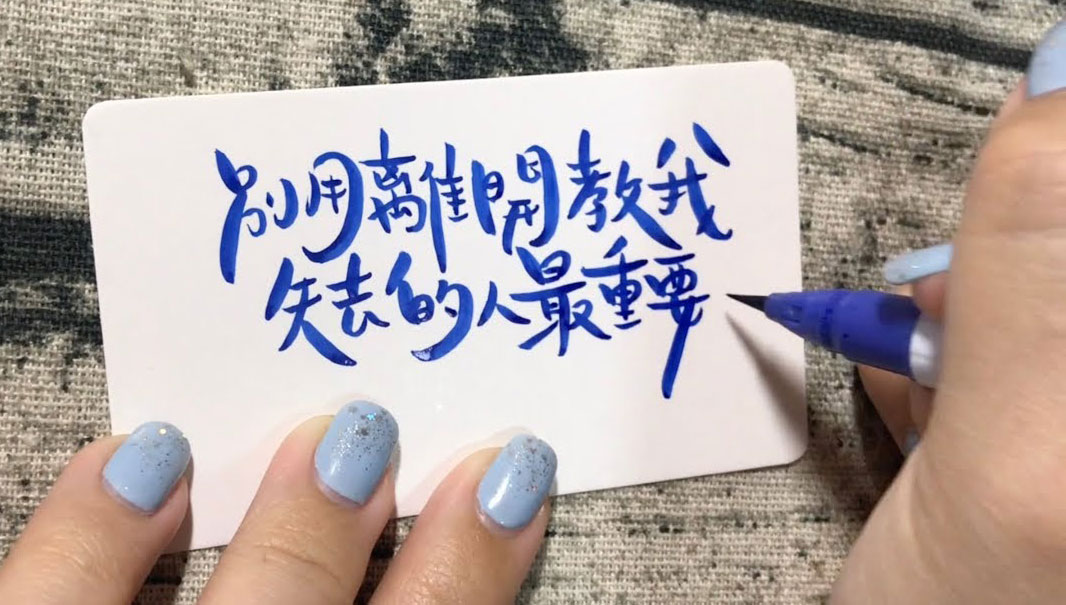 別用離開教我
失去的人最重要